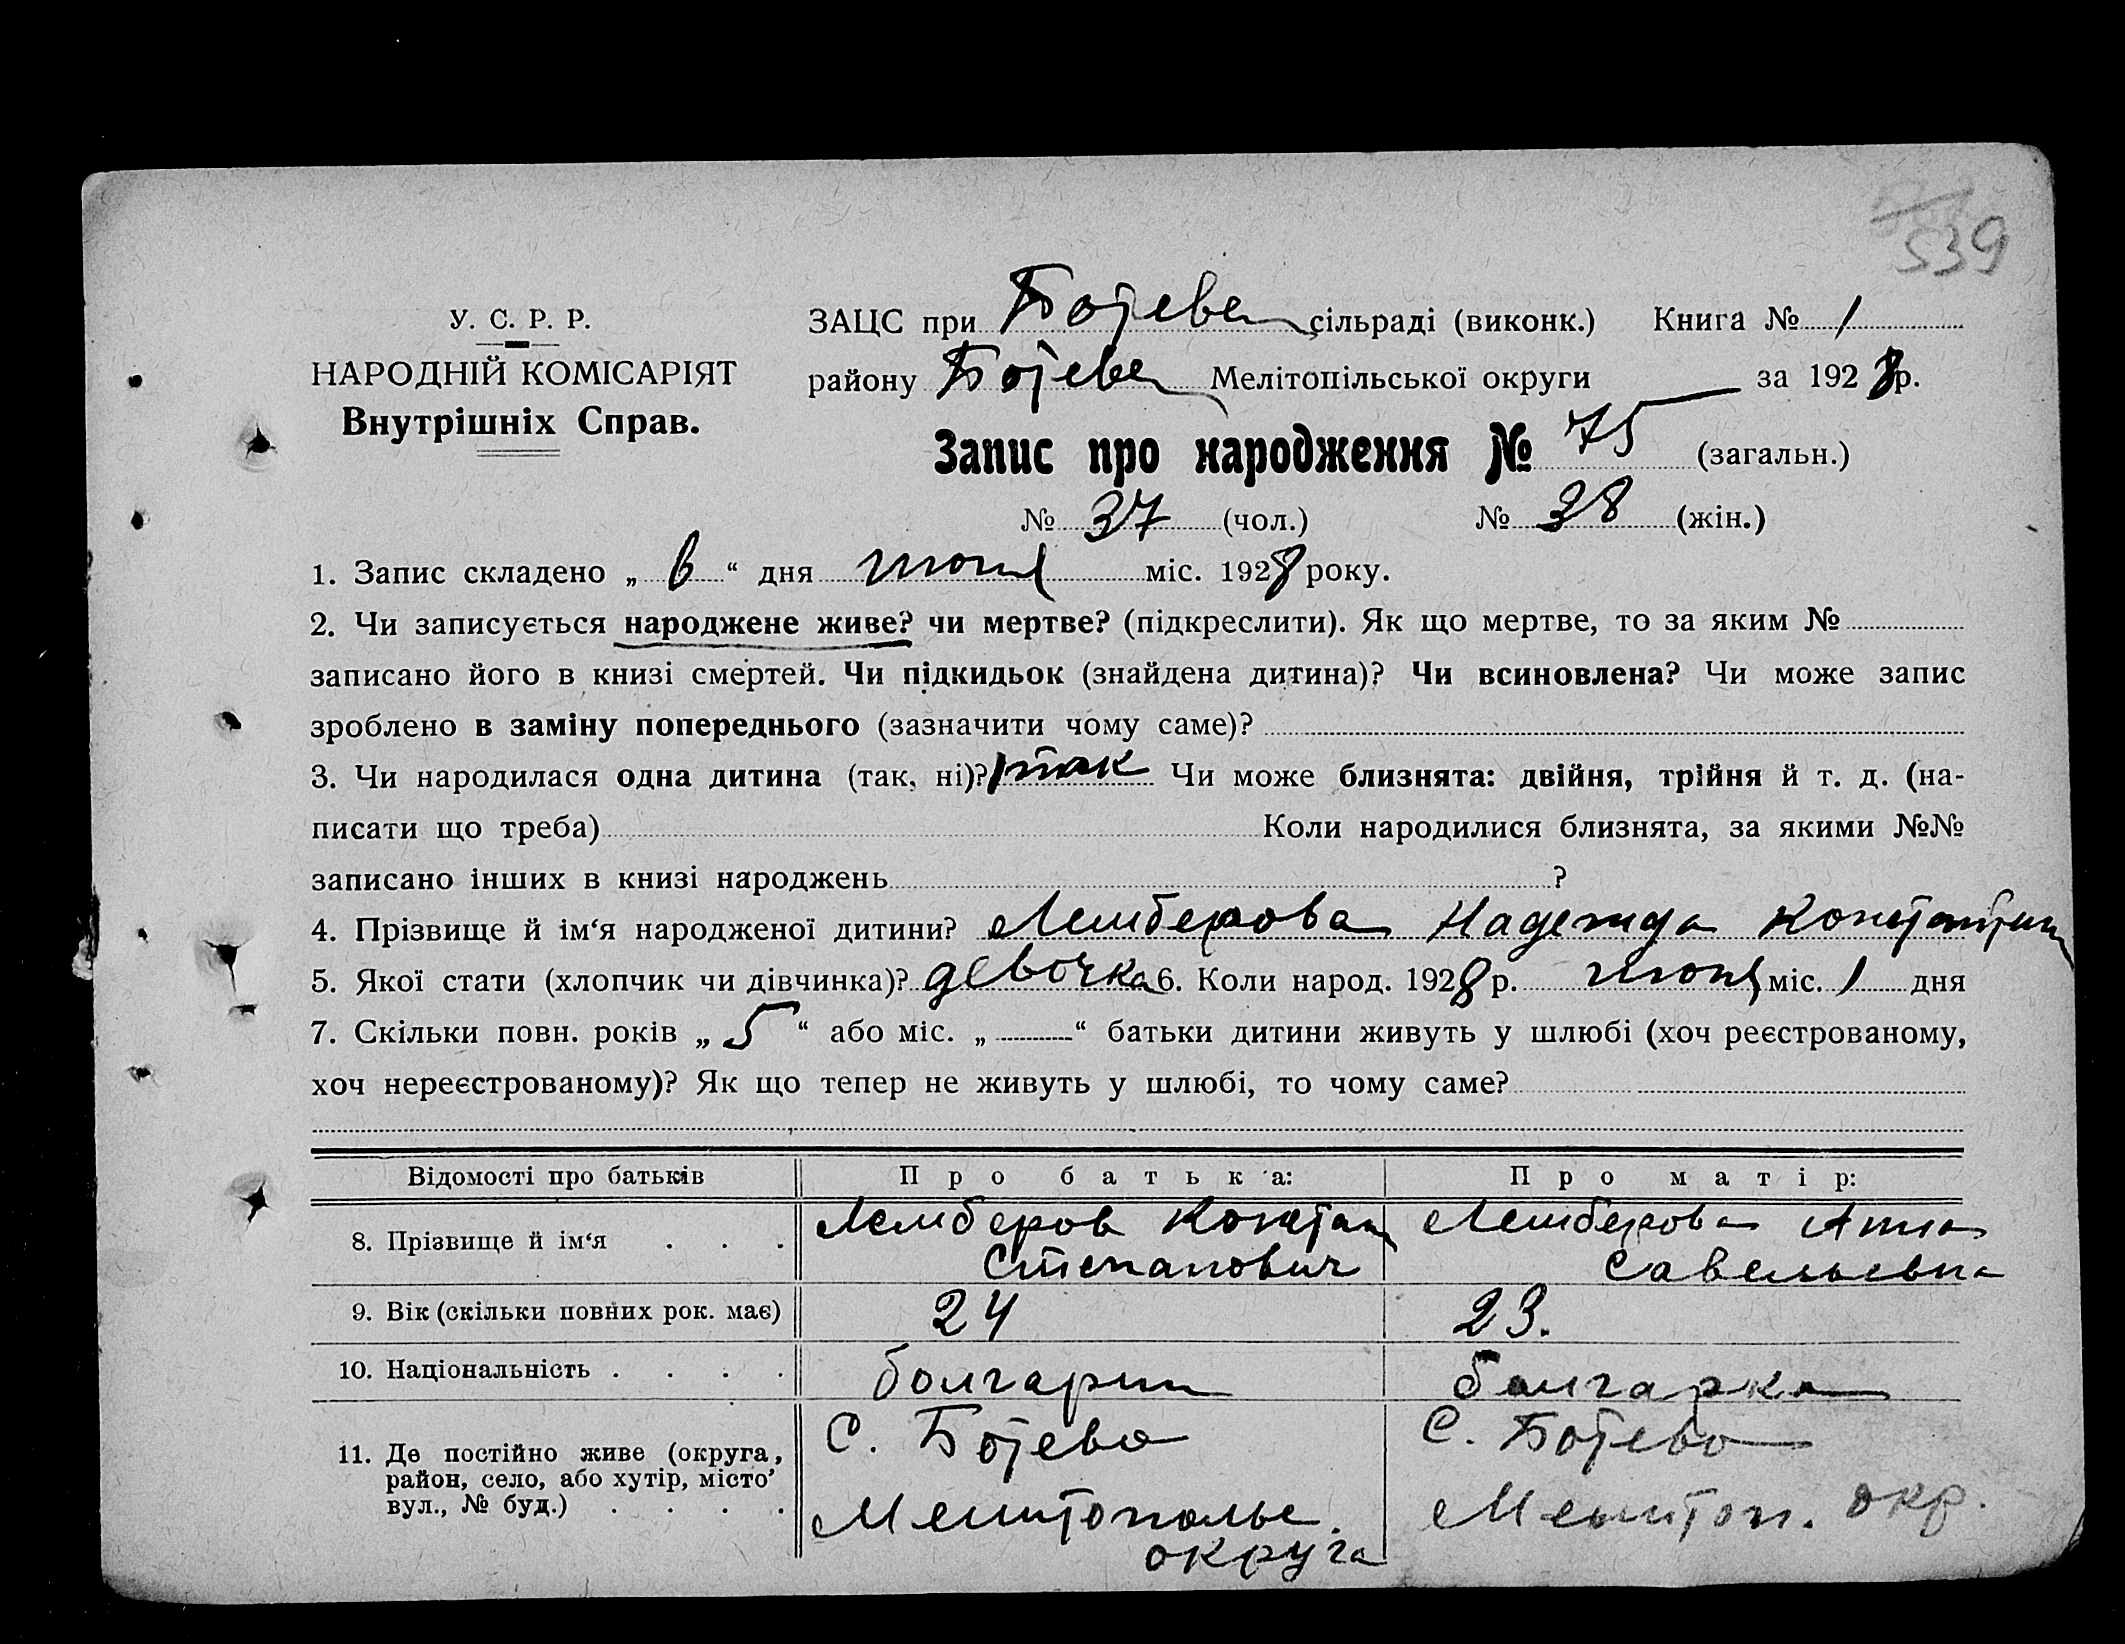 539
У. С. Р. Р.
НАРОДНІЙ КОМІСАРІЯТ
Внутрішніх Справ.
ЗАЦС при Ботеве сільраді (виконк.) Книга № 1
району Ботеве Мелітопільської округи за 1928 р.
Запис про народження № 75 (загальн.)
№ 37 (чол.) № 38 (жін.)
1. Запис складено „ 6 “ дня июня міс. 1928 року.
2. Чи записується народжене живе? чи мертве? (підкреслити). Як що мертве, то за яким №
записано його в книзі смертей. Чи підкидьок (знайдена дитина)? Чи всиновлена? Чи може запис
зроблено в заміну попереднього (зазначити чому саме)?
3. Чи народилася одна дитина (так, ні)? так Чи може близнята: двійня, трійня й т. д. (на-
писати що треба) Коли народилися близнята, за якими №№
записано інших в книзі народжень ?
4. Прізвище й ім‘я народженої дитини? Лемберова Надежда Константин
5. Якої стати (хлопчик чи дівчинка)? девочка 6. Коли народ. 1928 р. июня міс. 1 дня
7. Скільки повн. років „ 5 “ або міс. „ “ батьки дитини живуть у шлюбі (хоч реєстрованому,
хоч нереєстрованому)? Як що тепер не живуть у шлюбі, то чому саме?
Відомості про батьків Про батька: Про матір:
8. Прізвище й ім‘я . . . Лемберов Констан Лемберова Анна
Степанович Савельевна
9. Вік (скільки повних рок. має) 24 23.
10. Національність . . . . болгарин болгарка
11. Де постійно живе (округа, район, село, або хутір, місто’ вул., № буд.) . . . . С. Ботево С. Ботево
Мелитопольс. Мелитоп. окр.
округа